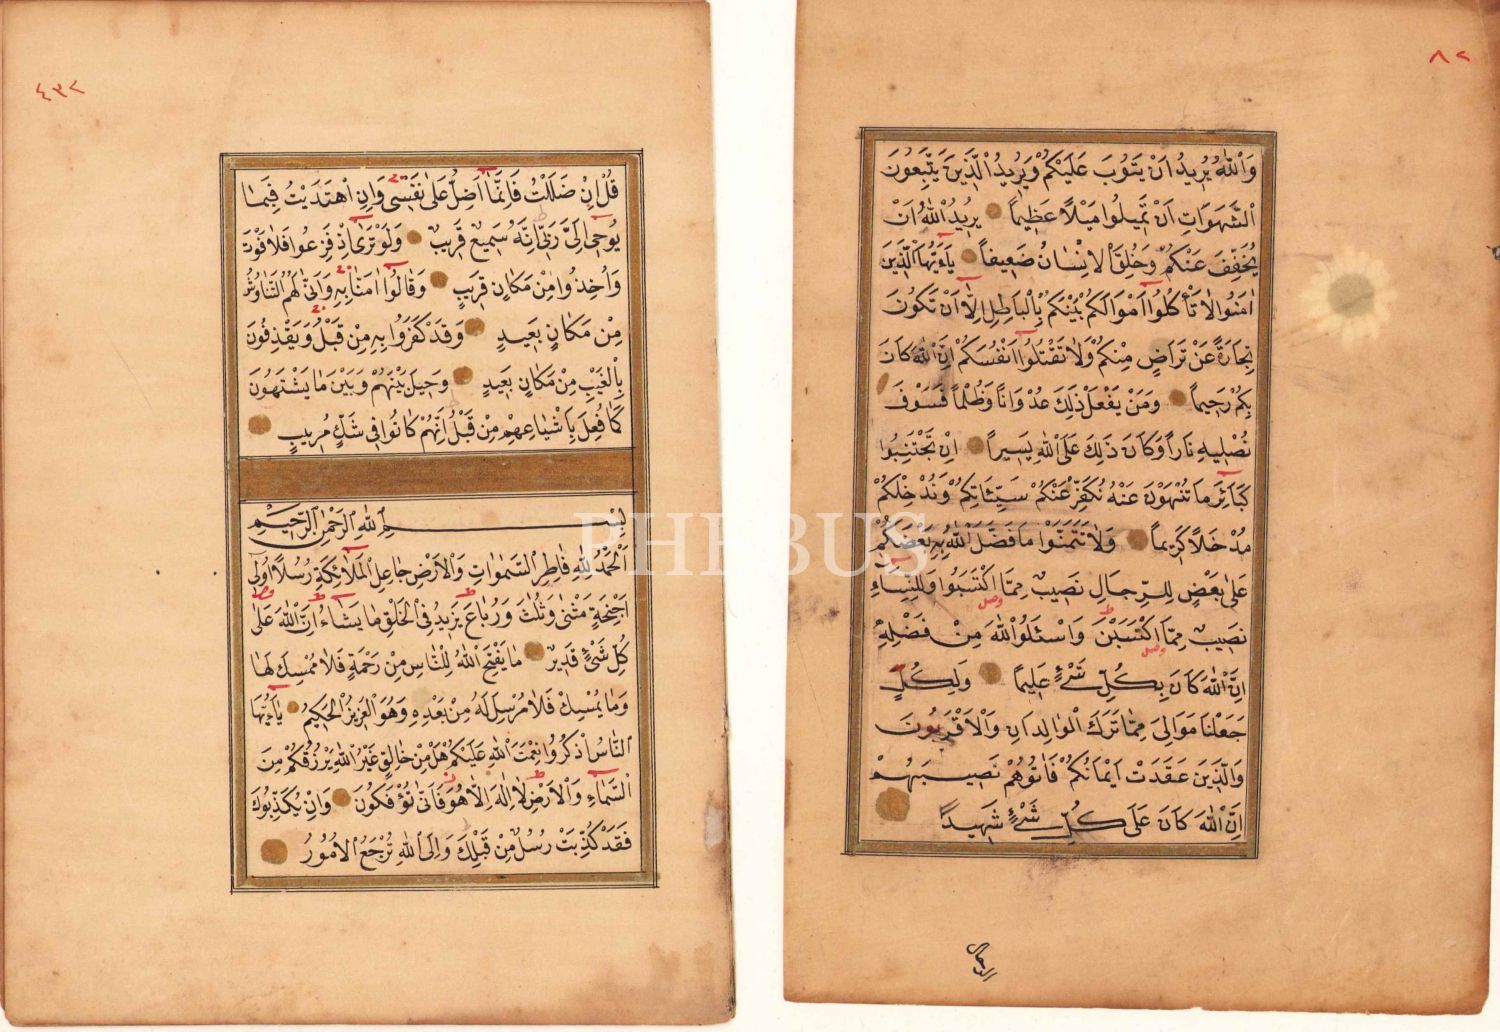 ٨٢
وَاللّٰهُ يُرِيدُ اَنْ يَتُوبَ عَلَيْكُمْ وَيُرِيدُ الَّذِينَ يَتَّبِعُونَ
الشَّهَوَاتِ اَنْ تَمِيلُوا مَيْلًا عَظِيمًا يُرِيدُ اللّٰهُ اَنْ
يُخَفِّفَ عَنْكُمْ وَخُلِقَ الْاِنْسَانُ ضَعِيفًا يَٓا اَيُّهَا الَّذِينَ
اٰمَنُوا لَا تَأْكُلُٓوا اَمْوَالَكُمْ بَيْنَكُمْ بِالْبَاطِلِ اِلَّٓا اَنْ تَكُونَ
تِجَارَةً عَنْ تَرَاضٍ مِنْكُمْ وَلَا تَقْتُلُٓوا اَنْفُسَكُمْ اِنَّ اللّٰهَ كَانَ
بِكُمْ رَحِيمًا وَمَنْ يَفْعَلْ ذٰلِكَ عُدْوَانًا وَظُلْمًا فَسَوْفَ
نُصْلِيهِ نَارًا وَكَانَ ذٰلِكَ عَلَى اللّٰهِ يَسِيرًا اِنْ تَجْتَنِبُوا
كَبَٓائِرَ مَا تُنْهَوْنَ عَنْهُ نُكَفِّرْ عَنْكُمْ سَيِّئَاتِكُمْ وَنُدْخِلْكُمْ
مُدْخَلًا كَرِيمًا وَلَا تَتَمَنَّوْا مَا فَضَّلَ اللّٰهُ بِهِ بَعْضَكُمْ
عَلٰى بَعْضٍ لِلرِّجَالِ نَصِيبٌ مِمَّا اكْتَسَبُوا وَلِلنِّسَٓاءِ
نَصِيبٌ مِمَّا اكْتَسَبْنَ وَاسْئَلُوا اللّٰهَ مِنْ فَضْلِهِ
اِنَّ اللّٰهَ كَانَ بِكُلِّ شَيْءٍ عَلِيمًا وَلِكُلٍّ
جَعَلْنَا مَوَالِيَ مِمَّا تَرَكَ الْوَالِدَانِ وَالْاَقْرَبُونَ
وَالَّذِينَ عَقَدَتْ اَيْمَانُكُمْ فَاٰتُوهُمْ نَصِيبَهُمْ
اِنَّ اللّٰهَ كَانَ عَلٰى كُلِّ شَيْءٍ شَهِيدًا
الرجال
٤٣٢
قُلْ اِنْ ضَلَلْتُ فَاِنَّمَٓا اَضِلُّ عَلٰى نَفْسِي وَاِنِ اهْتَدَيْتُ فَبِمَا
يُوحِٓي اِلَيَّ رَبِّي اِنَّهُ سَمِيعٌ قَرِيبٌ وَلَوْ تَرٰٓى اِذْ فَزِعُوا فَلَا فَوْتَ
وَاُخِذُوا مِنْ مَكَانٍ قَرِيبٍ وَقَالُٓوا اٰمَنَّا بِهِ وَاَنّٰى لَهُمُ التَّنَاوُشُ
مِنْ مَكَانٍ بَعِيدٍ وَقَدْ كَفَرُوا بِهِ مِنْ قَبْلُ وَيَقْذِفُونَ
بِالْغَيْبِ مِنْ مَكَانٍ بَعِيدٍ وَحِيلَ بَيْنَهُمْ وَبَيْنَ مَا يَشْتَهُونَ
كَمَا فُعِلَ بِاَشْيَاعِهِمْ مِنْ قَبْلُ اِنَّهُمْ كَانُوا فِي شَكٍّ مُرِيبٍ
بِسْمِ اللّٰهِ الرَّحْمٰنِ الرَّحِيمِ
اَلْحَمْدُ لِلّٰهِ فَاطِرِ السَّمٰوَاتِ وَالْاَرْضِ جَاعِلِ الْمَلٰٓئِكَةِ رُسُلًا اُولِٓي
اَجْنِحَةٍ مَثْنٰى وَثُلٰثَ وَرُبَاعَ يَزِيدُ فِي الْخَلْقِ مَا يَشَٓاءُ اِنَّ اللّٰهَ عَلٰى
كُلِّ شَيْءٍ قَدِيرٌ مَا يَفْتَحِ اللّٰهُ لِلنَّاسِ مِنْ رَحْمَةٍ فَلَا مُمْسِكَ لَهَا
وَمَا يُمْسِكْ فَلَا مُرْسِلَ لَهُ مِنْ بَعْدِهِ وَهُوَ الْعَزِيزُ الْحَكِيمُ يَٓا اَيُّهَا
النَّاسُ اذْكُرُوا نِعْمَتَ اللّٰهِ عَلَيْكُمْ هَلْ مِنْ خَالِقٍ غَيْرُ اللّٰهِ يَرْزُقُكُمْ مِنَ
السَّمَٓاءِ وَالْاَرْضِ لَٓا اِلٰهَ اِلَّا هُوَ فَاَنّٰى تُؤْفَكُونَ وَاِنْ يُكَذِّبُوكَ
فَقَدْ كُذِّبَتْ رُسُلٌ مِنْ قَبْلِكَ وَاِلَى اللّٰهِ تُرْجَعُ الْاُمُورُ
PHEBUS